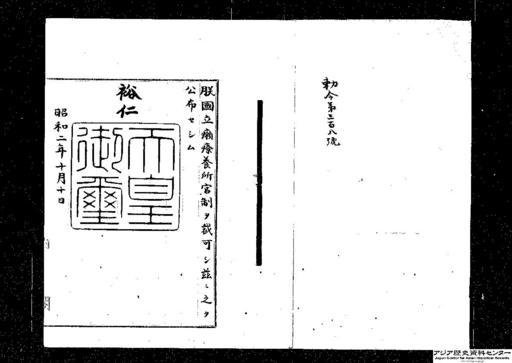 勅令第三百八號
朕國立癩療養所官制ヲ裁可シ茲ニ之ヲ
公布セシム
裕仁
天皇御璽
昭和二年十月十日
アジア歴史資料センター
Japan Center for Asian Historical Records